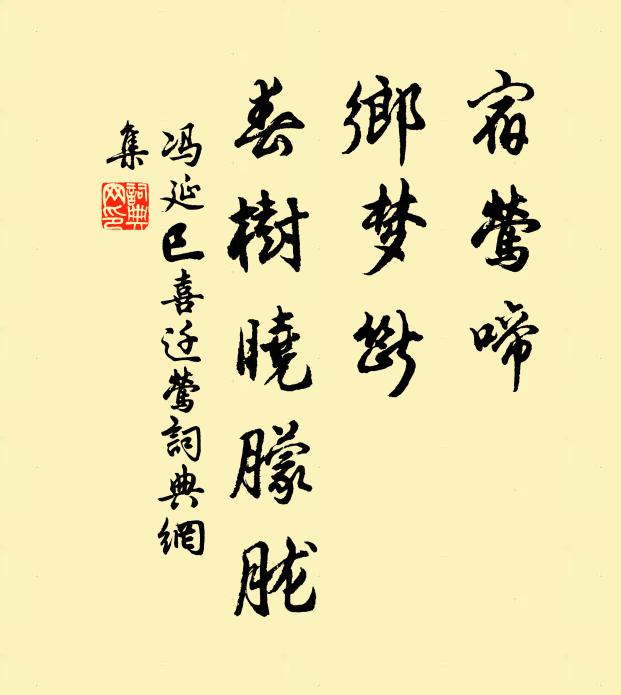 宿莺啼
鄉梦斷
春樹曉朦朧
冯延巳喜迁莺詞典網
集
詞典網印